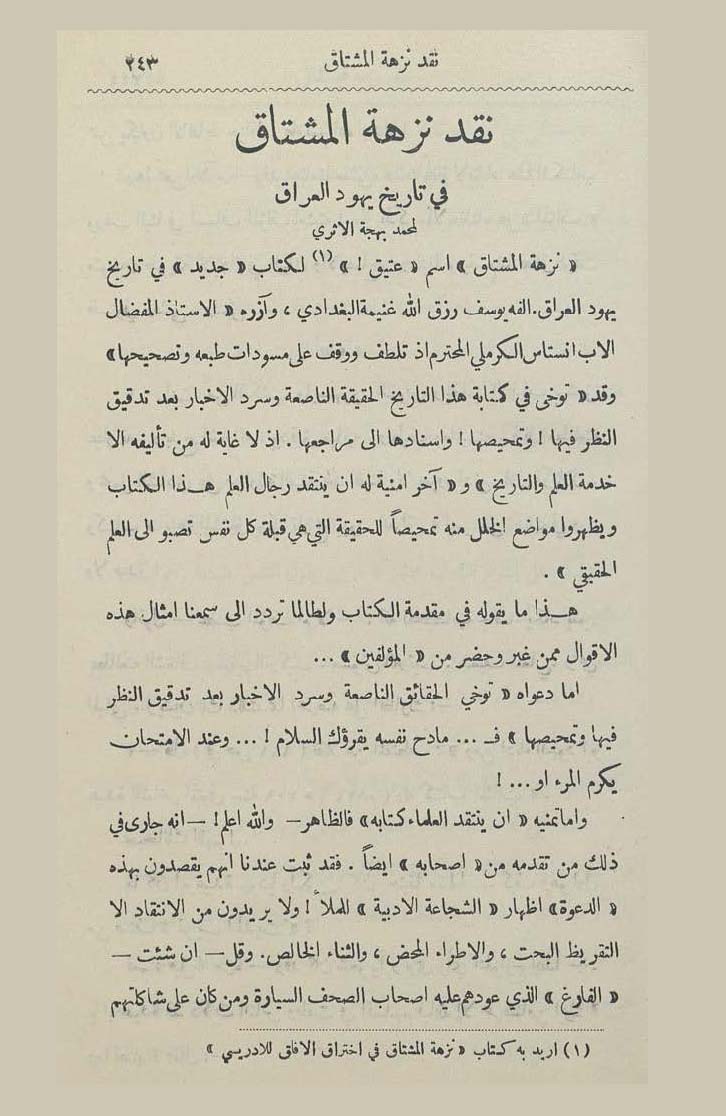 نقد نزهة المشتاق ٢٤٣
نقد نزهة المشتاق
في تاريخ يهود العراق
لمحمد بهجة الاثري
« نزهة المشتاق » اسم « عتيق ! » (١) لكتاب « جديد » في تاريخ
يهود العراق. الفه يوسف رزق الله غنيمة البغدادي ، وآزره « الاستاذ المفضال
الاب انستاس الكرملي المحترم اذ تلطف ووقف على مسودات طبعه وتصحيحها »
وقد « توخى في كتابة هذا التاريخ الحقيقة الناصعة وسرد الاخبار بعد تدقيق
النظر فيها ! وتمحيصها ! واسنادها الى مراجعها . اذ لا غاية له من تأليفه الا
خدمة العلم والتاريخ » و « آخر امنية له ان ينتقد رجال العلم هـذا الكتاب
ويظهروا مواضع الخلل منه تمحيصاً للحقيقة التي هي قبلة كل نفس تصبو الى العلم
الحقيقي » .
هـذا ما يقوله في مقدمة الكتاب ولطالما تردد الى سمعنا امثال هذه
الاقوال ممن غبر وحضر من « المؤلفين » ...
اما دعواه « توخي الحقائق الناصعة وسرد الاخبار بعد تدقيق النظر
فيها وتمحيصها » فـ ... مادح نفسه يقرؤك السلام ! ... وعند الامتحان
يكرم المرء او ... !
واما تمنيه « ان ينتقد العلماء كتابه » فالظاهر — والله اعلم ! — انه جارى في
ذلك من تقدمه من « اصحابه » ايضاً . فقد ثبت عندنا انهم يقصدون بهذه
« الدعوة » اظهار « الشجاعة الادبية » للملأ ! ولا يريدون من الانتقاد الا
التقريظ البحت ، والاطراء المحض ، والثناء الخالص. وقل — ان شئت —
« الفارغ » الذي عودهم عليه اصحاب الصحف السيارة ومن كان على شاكلتهم
(١) اريد به كتاب « نزهة المشتاق في اختراق الافاق للادريسي »